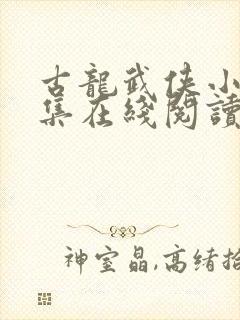 古龍武俠小
集在綫閱讀
神室晶,高绪拾